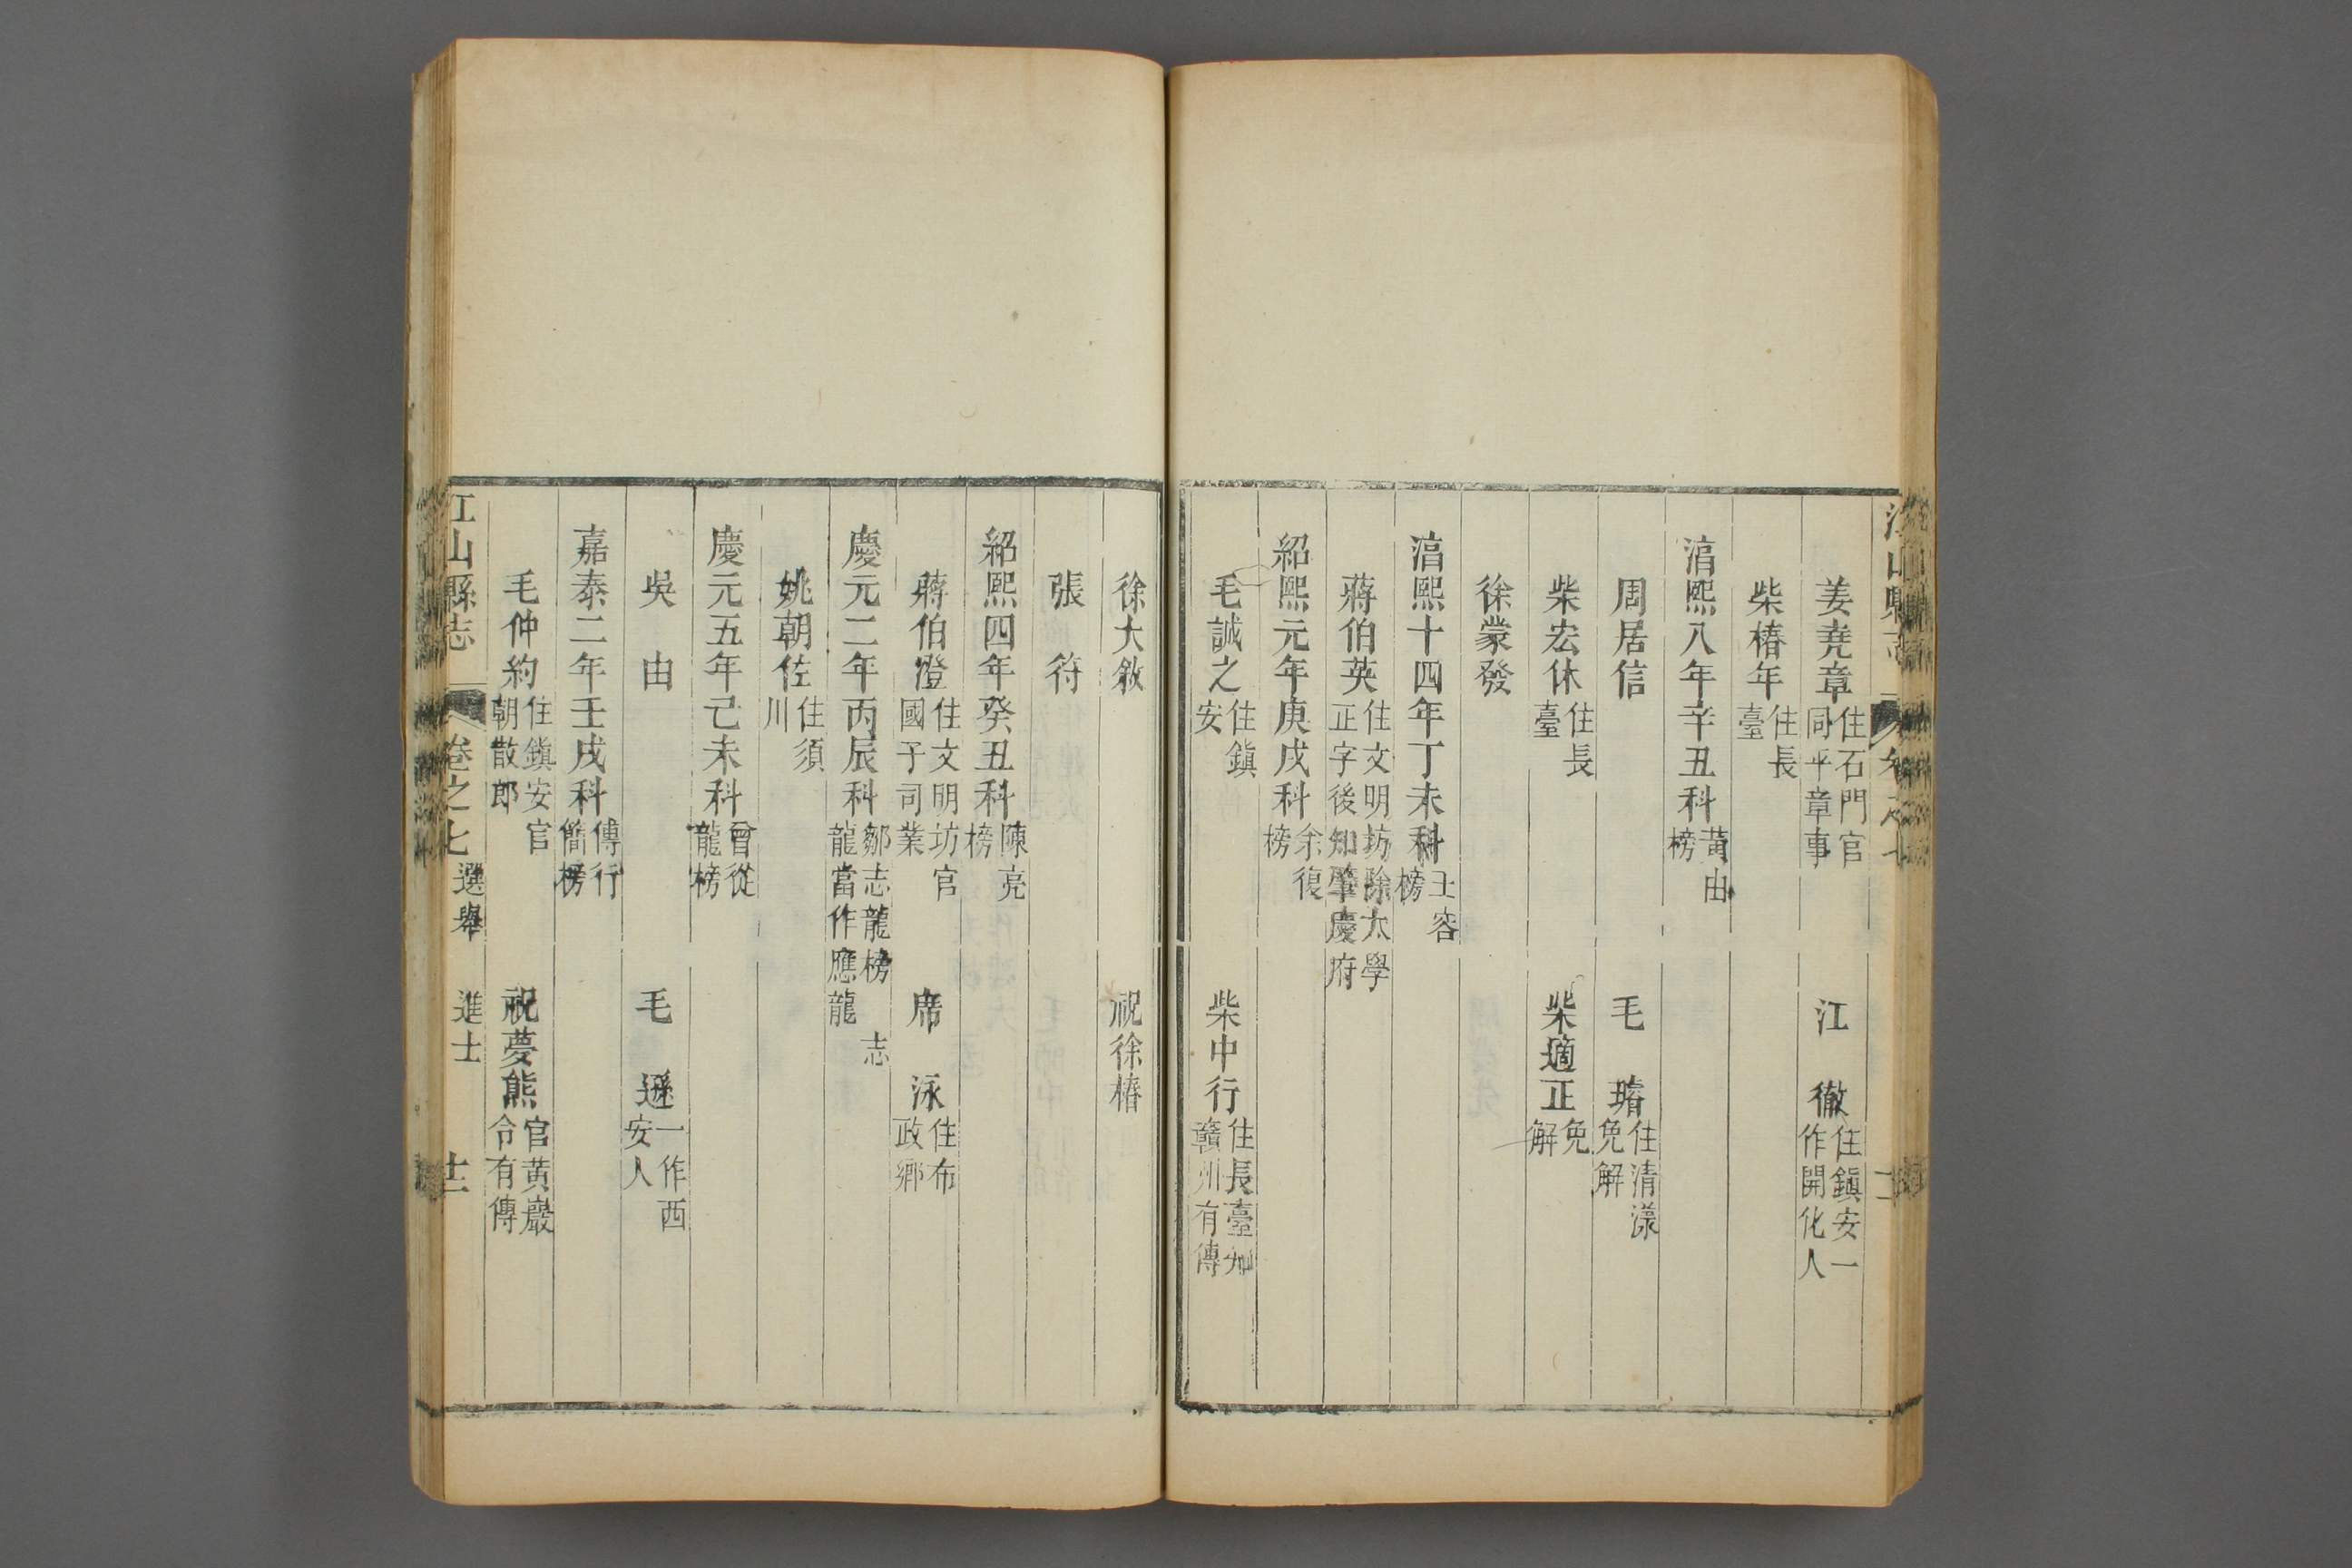 姜堯章住石門官同平章事　江　徹住鎮安一作開化人
柴椿年住長臺
湻熙八年辛丑科黃由榜
周居信　毛　璿住清漾免解
柴宏休住長臺　柴適正免解
徐蒙發
湻熙十四年丁未科王容榜
蔣伯英住文明坊除太學正字後知肇慶府
紹熙元年庚戌科余復榜
毛誠之住鎮安　柴中行住長臺知贛州有傳
徐大敘　祝徐椿
張　符
紹熙四年癸丑科陳亮榜
蔣伯澄住文明坊官國子司業　席　泳住布政鄉
慶元二年丙辰科鄒志龍榜　志龍當作應龍
姚朝佐住須川
慶元五年己未科曾從龍榜
吳　由　毛　遜一作西安人
嘉泰二年壬戌科傅行簡榜
毛仲約住鎮安官朝散郎　祝夢熊官黃巖令有傳
江山縣志　卷之七　選舉　進士　十二